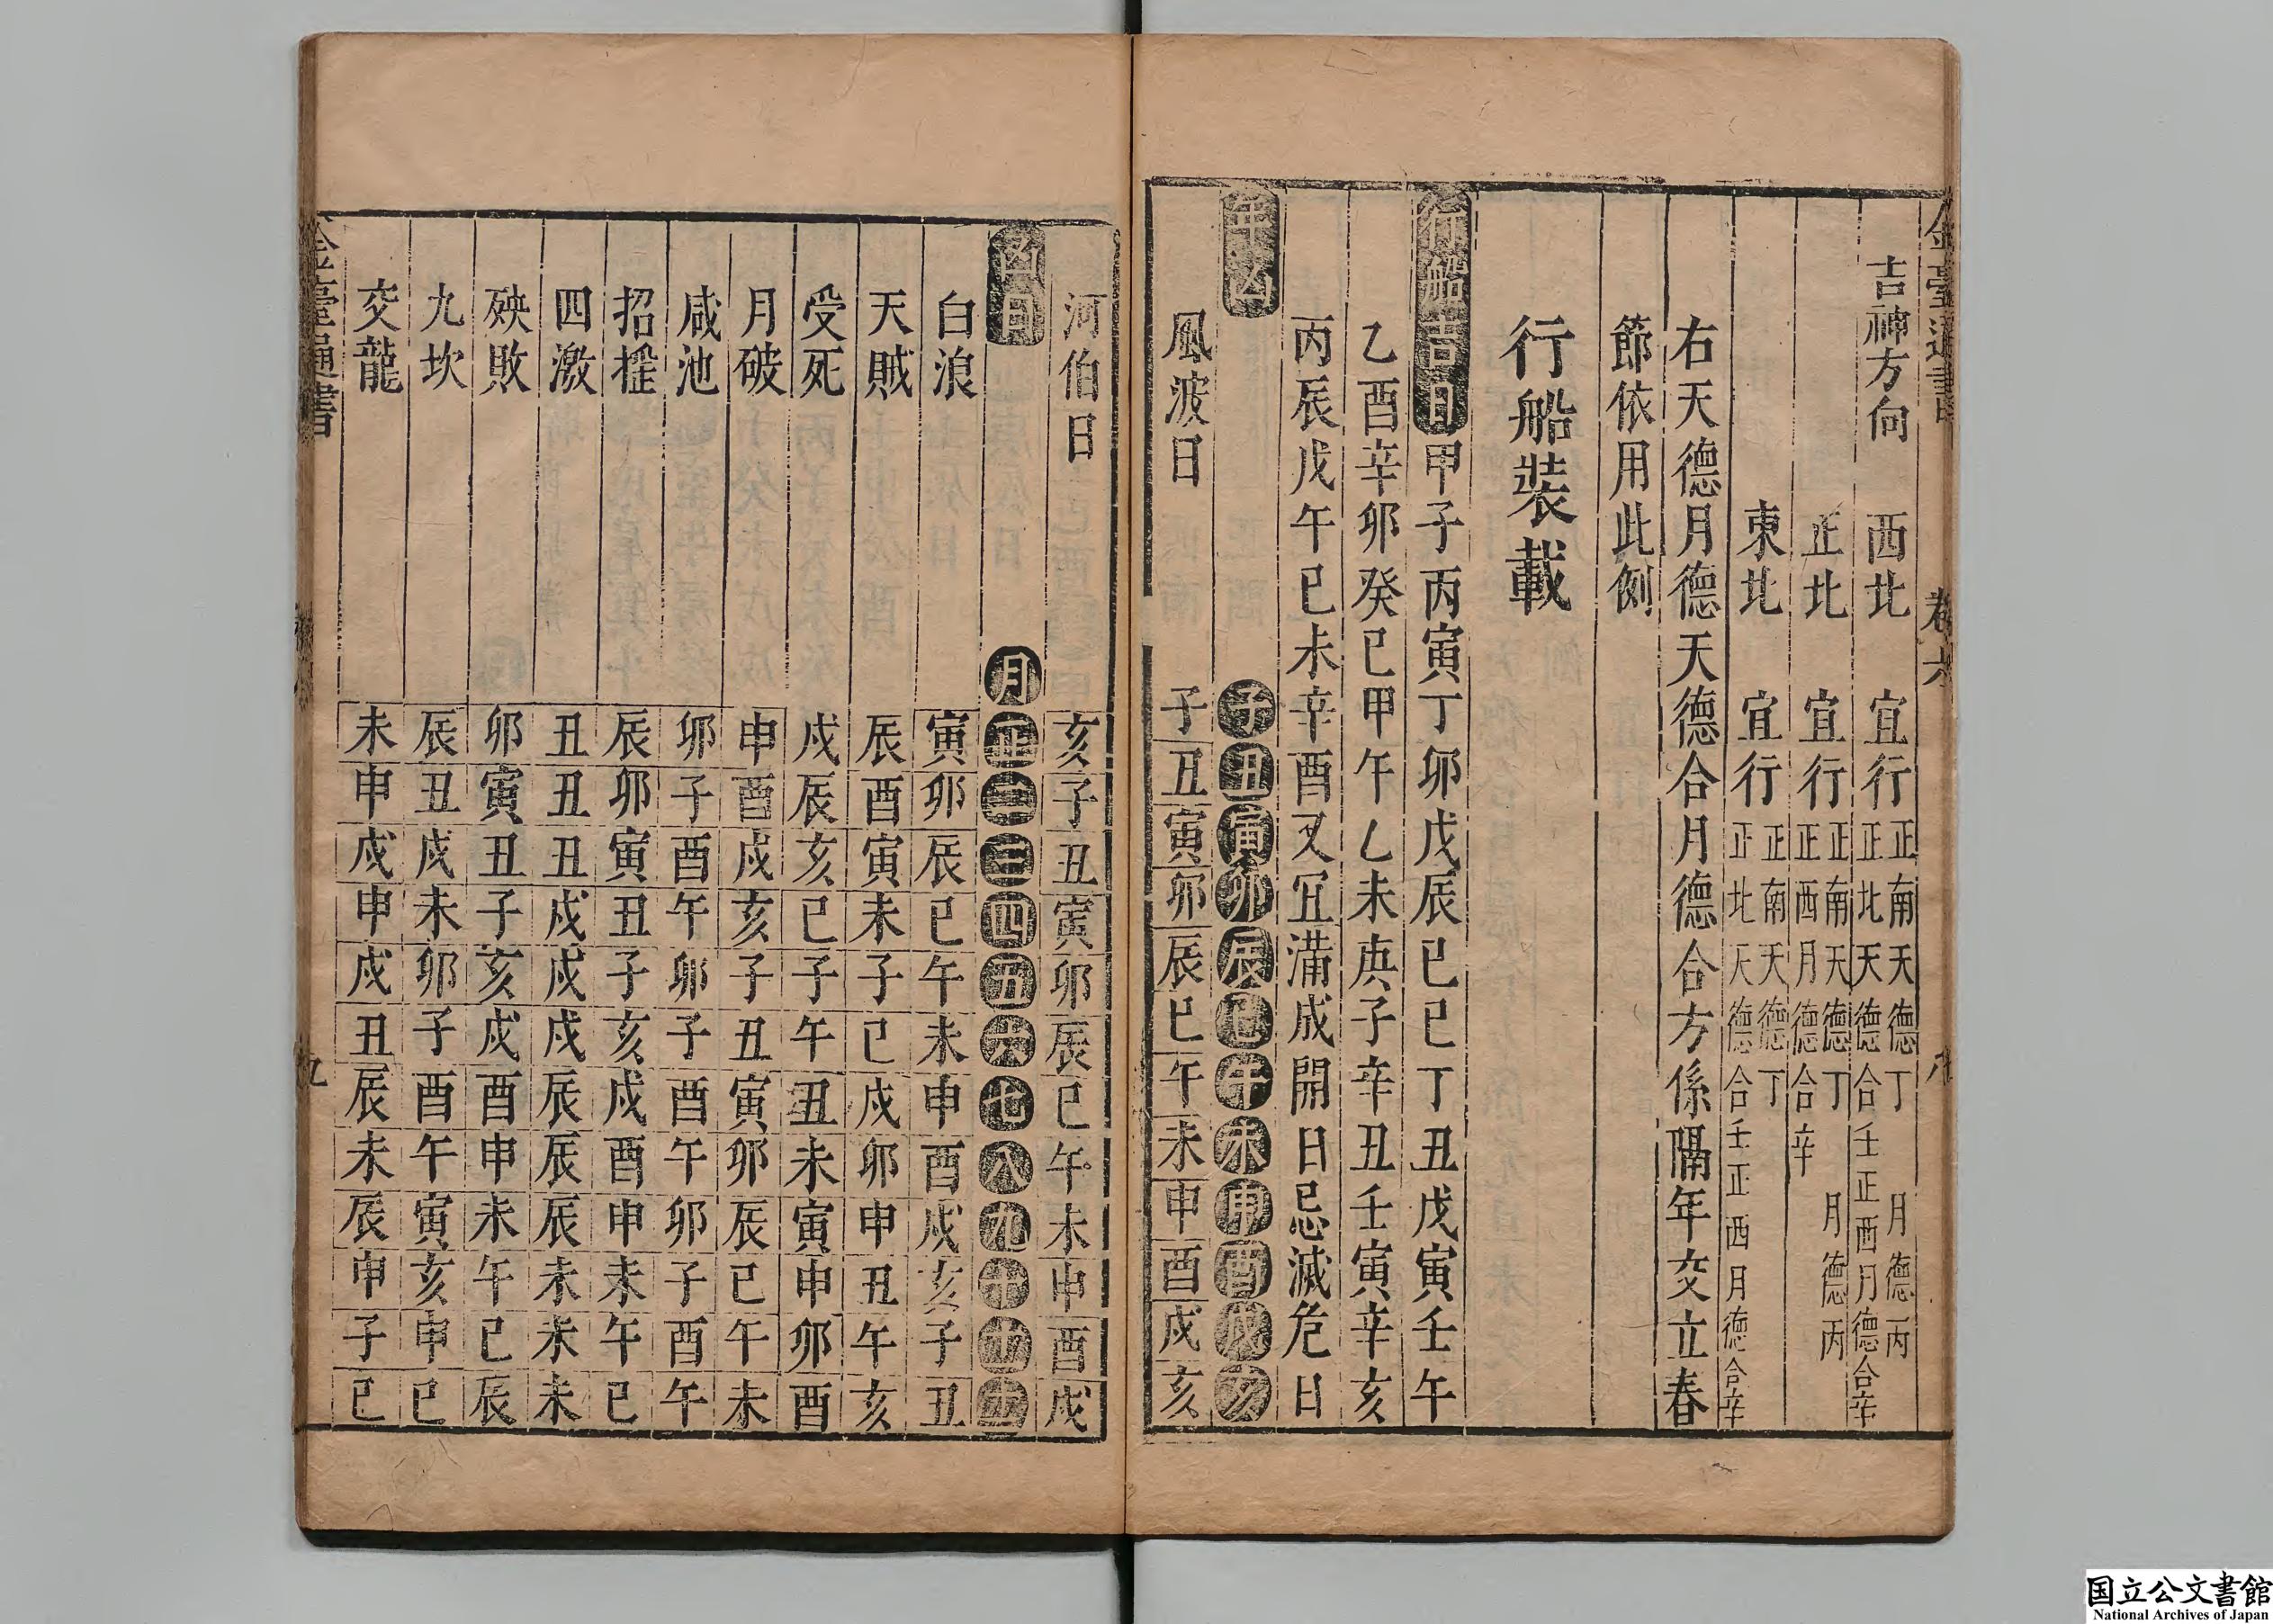 金臺通書　卷六　八
吉神方向　西北　宜行　正南天德丁　月德丙　正北天德合壬正西月德合辛
正北　宜行　正南天德丁　月德丙　正西月德合辛
東北　宜行　正南天德丁　正北天德合壬正西月德合辛
右天德月德天德合月德合方係隔年交立春
節依用此例
行船裝載
行船吉日甲子丙寅丁卯戊辰已巳丁丑戊寅壬午
乙酉辛卯癸巳甲午乙未庚子辛丑壬寅辛亥
丙辰戊午已未辛酉又宜滿成開日忌滅危日
年凶　子丑寅卯辰巳午未申酉戌亥
風波日　子丑寅卯辰巳午未申酉戌亥
河伯日　亥子丑寅卯辰巳午未申酉戌
凶日　月正二三四五六七八九十十一十二
白浪　寅卯辰巳午未申酉戌亥子丑
天賊　辰酉寅未子巳戌卯申丑午亥
受死　戌辰亥巳子午丑未寅申卯酉
月破　申酉戌亥子丑寅卯辰巳午未
咸池　卯子酉午卯子酉午卯子酉午
招搖　辰卯寅丑子亥戌酉申未午巳
四激　丑丑丑戌戌戌辰辰辰未未未
殃敗　卯寅丑子亥戌酉申未午巳辰
九坎　辰丑戌未卯子酉午寅亥申巳
交龍　未申戌申戌丑辰未辰申子巳
金臺通書　九
国立公文書館
National Archives of Japan